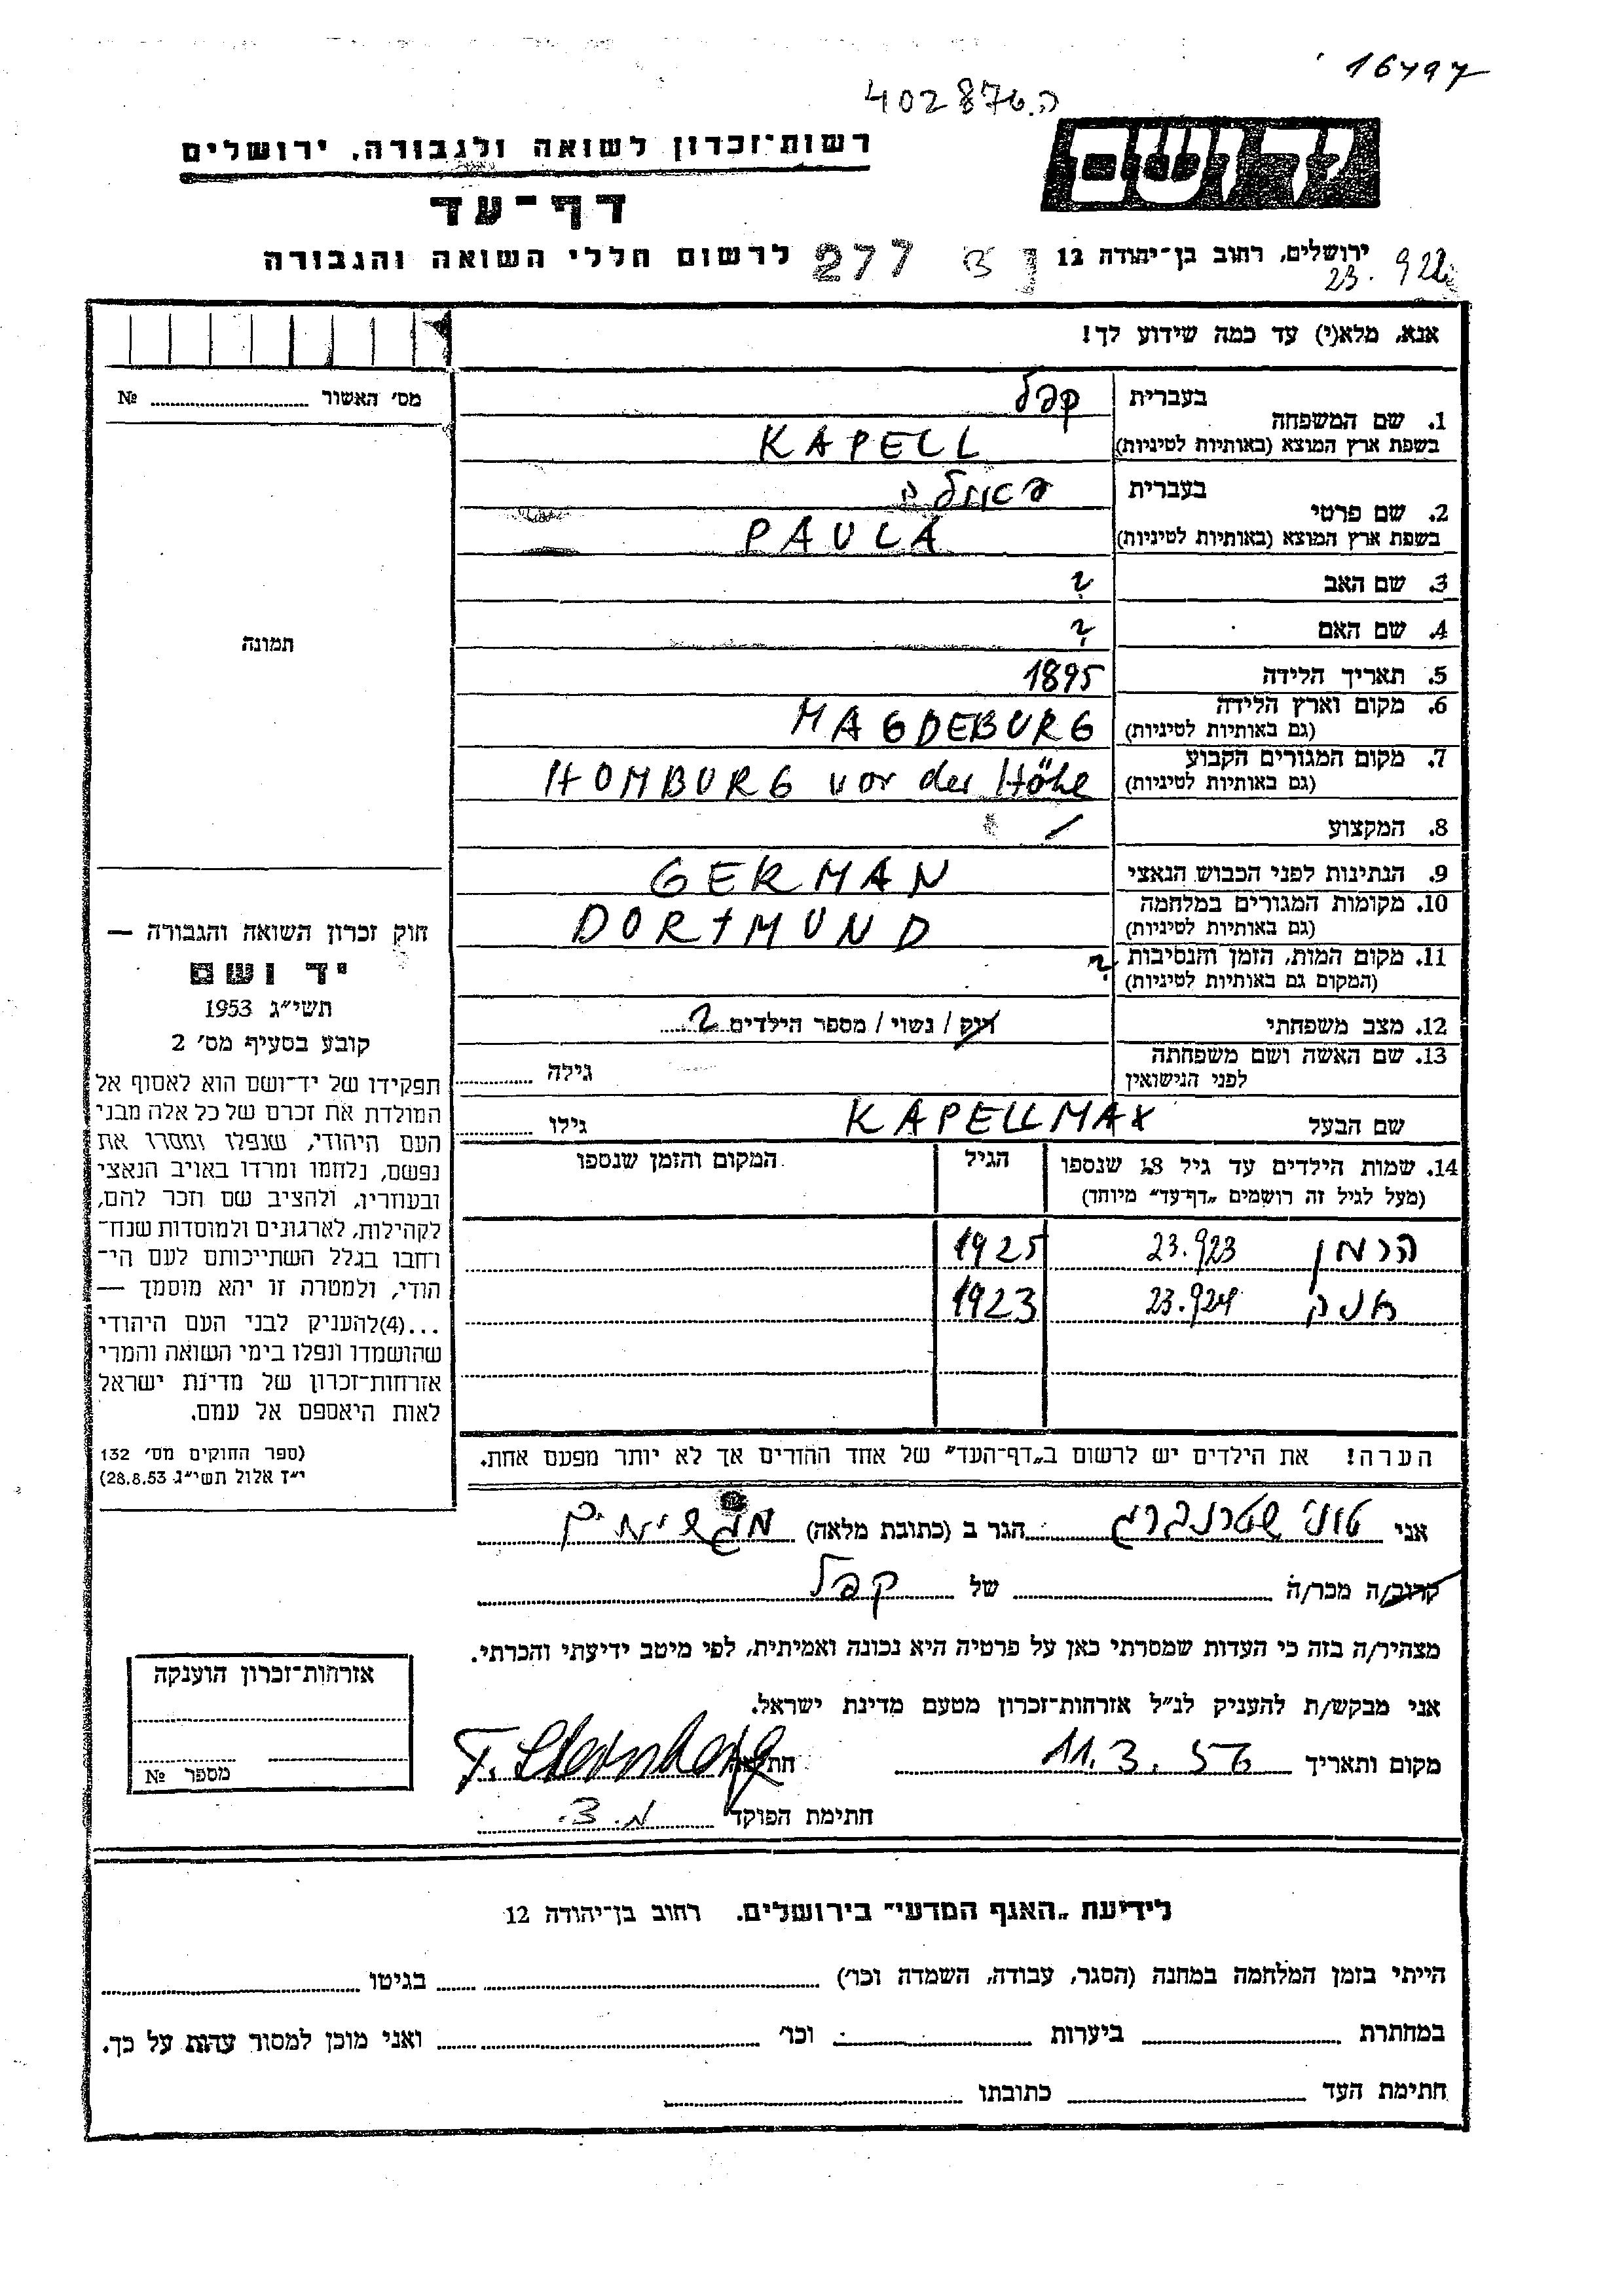 16797
402876.ה
יד ושם
רשות־זכרון לשואה ולגבורה, ירושלים
דף־עד
ירושלים, רחוב בן־יהודה 12
לרשום חללי השואה והגבורה
277
23.922
אנא, מלא(י) עד כמה שידוע לך!
מס' האשור № ........
1. שם המשפחה
בעברית קפל
בשפת ארץ המוצא (באותיות לטיניות) KAPELL
2. שם פרטי
בעברית פאולה
בשפת ארץ המוצא (באותיות לטיניות) PAULA
3. שם האב ?
4. שם האם ?
תמונה
5. תאריך הלידה 1895
6. מקום וארץ הלידה (גם באותיות לטיניות) MAGDEBURG
7. מקום המגורים הקבוע (גם באותיות לטיניות) HOMBURG vor der Höhe
8. המקצוע /
9. הנתינות לפני הכבוש הנאצי GERMAN
10. מקומות המגורים במלחמה (גם באותיות לטיניות) DORTMUND
11. מקום המות, הזמן והנסיבות (המקום גם באותיות לטיניות) ?
12. מצב משפחתי רוק / נשוי / מספר הילדים 2
13. שם האשה ושם משפחתה לפני הנישואין גילה ........
שם הבעל KAPELL MAX גילו ........
14. שמות הילדים עד גיל 18 שנספו הגיל המקום והזמן שנספו
(מעל לגיל זה רושמים „דף־עד" מיוחד)
הרמן 23.923 1925
אנה 23.924 1923
הערה! את הילדים יש לרשום ב„דף־העד" של אחד ההורים אך לא יותר מפעם אחת.
חוק זכרון השואה והגבורה —
יד ושם
תשי"ג 1953
קובע בסעיף מס' 2
תפקידו של יד־ושם הוא לאסוף אל
המולדת את זכרם של כל אלה מבני
העם היהודי, שנפלו ומסרו את
נפשם, נלחמו ומרדו באויב הנאצי
ובעוזריו, ולהציב שם וזכר להם,
לקהילות, לארגונים ולמוסדות שנח־
רחבו בגלל השתייכותם לעם הי־
הודי, ולמטרה זו יהא מוסמך —
...(4)להעניק לבני העם היהודי
שהושמדו ונפלו בימי השואה והמרי
אזרחות־זכרון של מדינת ישראל
לאות היאספם אל עמם.
(ספר החוקים מס' 132
י"ז אלול תשי"ג 28.8.53)
אני טוני שטרנברג הגר ב (כתובת מלאה) מגשימים
קרוב/ה מכר/ה ........ של קפל
מצהיר/ה בזה כי העדות שמסרתי כאן על פרטיה היא נכונה ואמיתית, לפי מיטב ידיעתי והכרתי.
אני מבקש/ת להעניק לנ"ל אזרחות־זכרון מטעם מדינת ישראל.
מקום ותאריך 11.3.56 T. Sternberg
חתימת הפוקד מ.ב.
אזרחות־זכרון הוענקה
מספר №
לידיעת „האגף המדעי" בירושלים. רחוב בן־יהודה 12
הייתי בזמן המלחמה במחנה (הסגר, עבודה, השמדה וכו') ........ בגיטו ........
במחתרת ........ ביערות ........ וכו' ........ ואני מוכן למסור עדות על כך.
חתימת העד ........ כתובתו ........